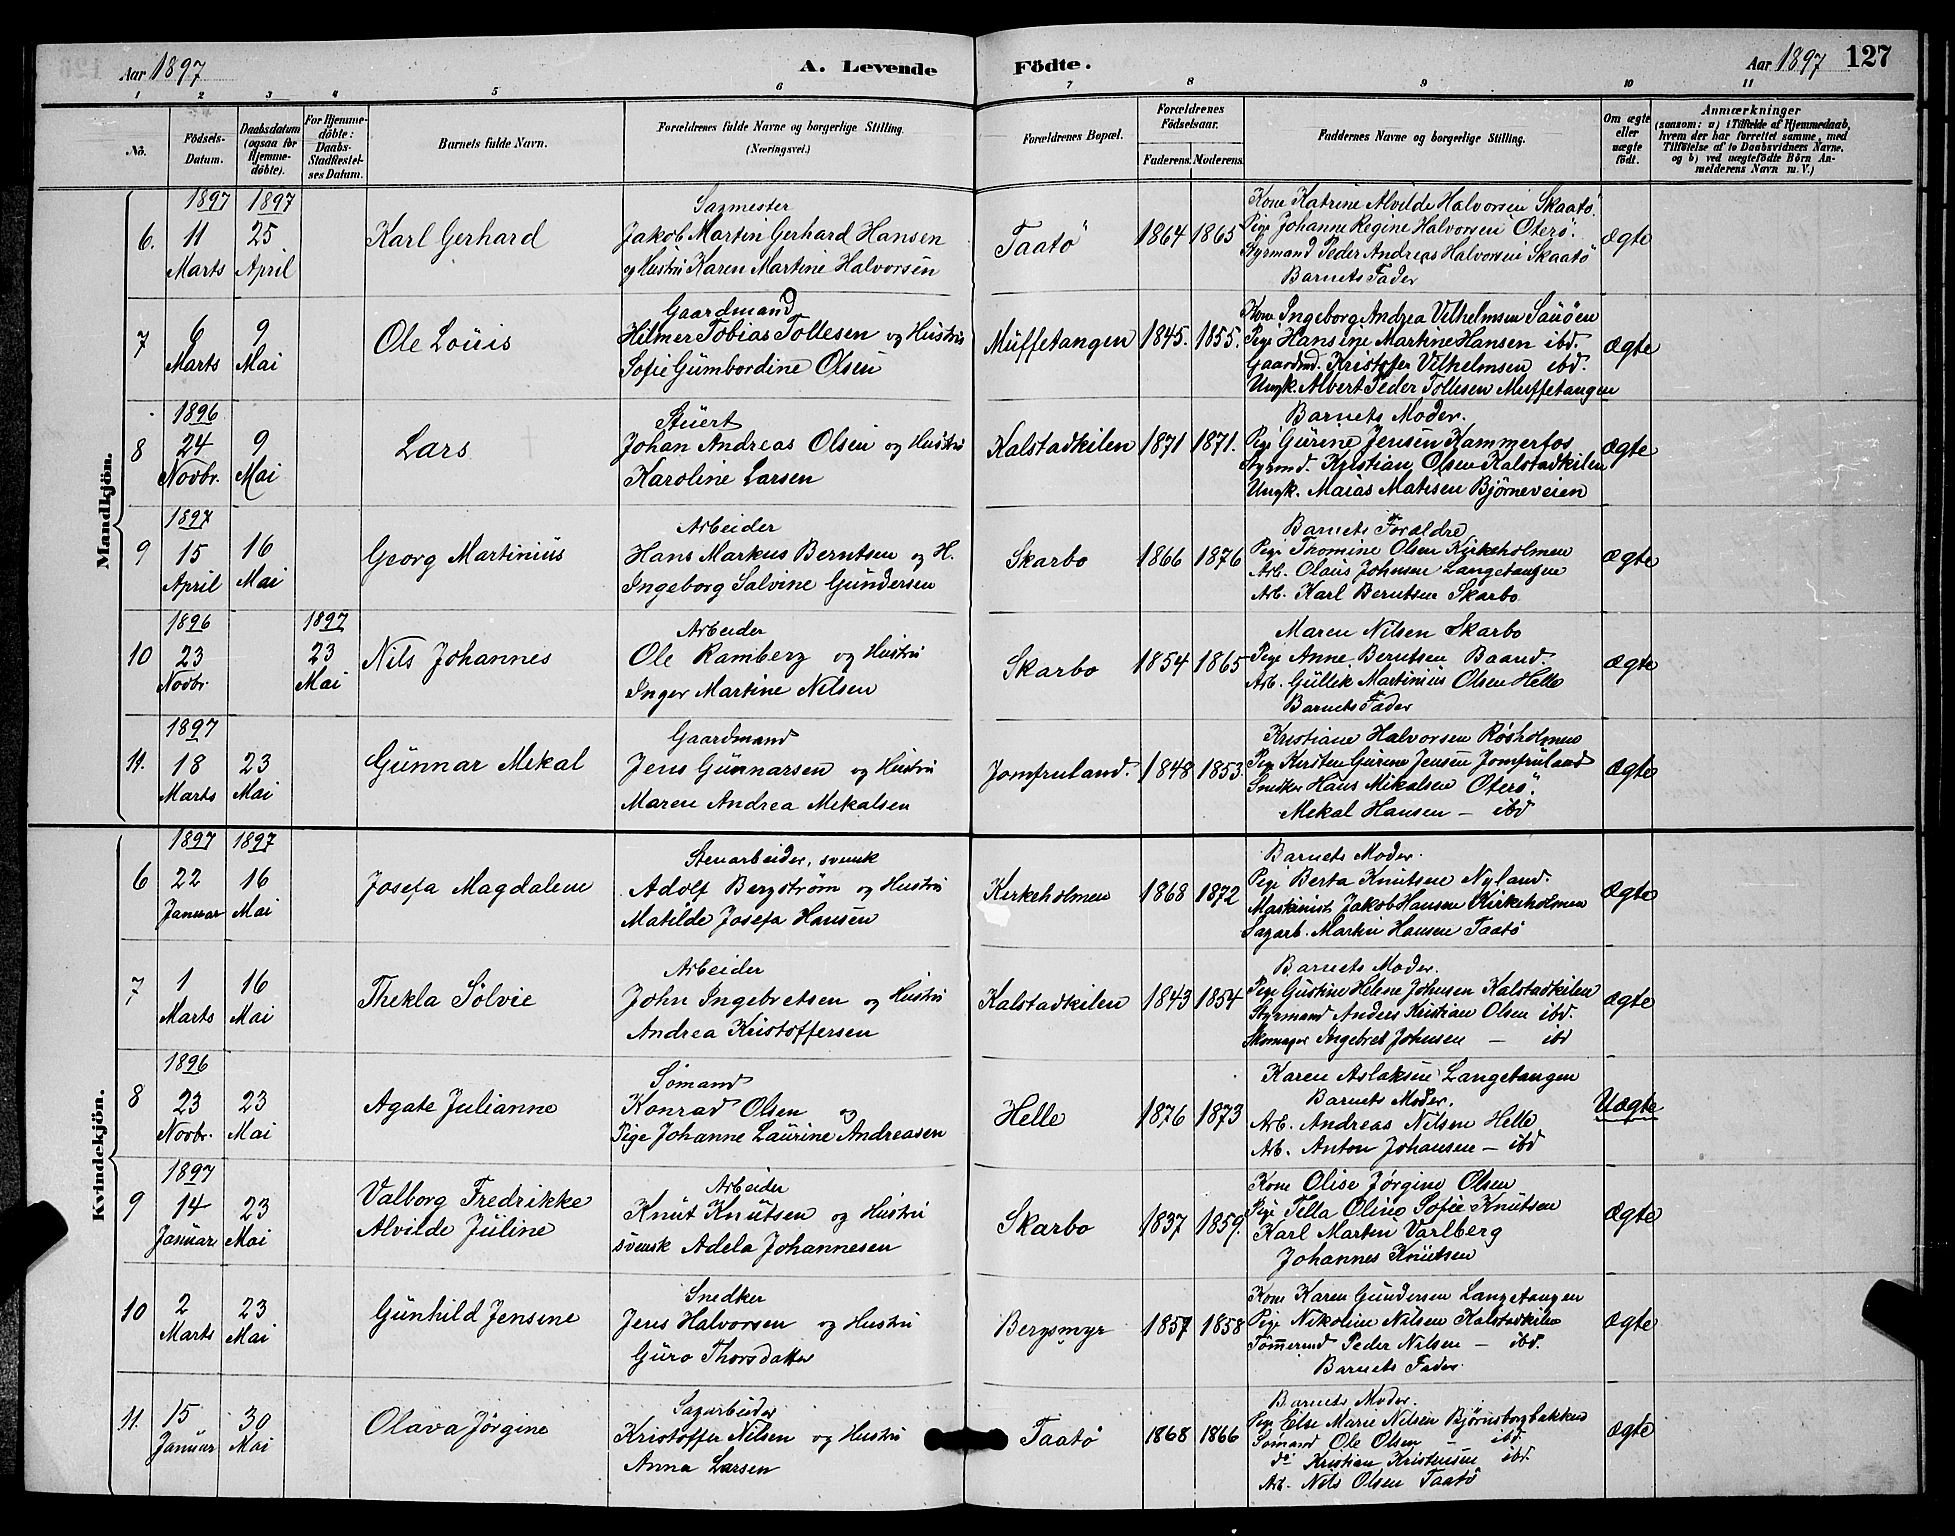 Aar 1897 A. Levende Födte. Aar 1897 127
1 2 3 4 5 6 7 8 9 10 11
No. Födsels-Datum. Daabsdatum (ogsaa for Hjemme-döbte). For Hjemme-döbte: Daabs-Stadfæstel-ses Datum. Barnets fulde Navn. Forældrenes fulde Navne og borgerlige Stilling. (Næringsvei.) Forældrenes Bopæl. Forældrenes Födselsaar. Faderens. Moderens. Faddernes Navne og borgerlige Stilling. Om ægte eller uægte födt. Anmærkninger (saasom: a) i Tilfælde af Hjemmedaab, hvem der har forrettet samme, med Tilföielse af to Daabsvidners Navne, og b) ved uægtefödte Börn An-melderens Navn m. V.)
Mandkjön.
1897 1897 Sagmester Kone Katrine Alvilde Halvorsen Skaatö.
6. 11 25 Karl Gerhard Jakob Martin Gerhard Hansen Taatö 1864 1865 Pige Johanne Regine Halvorsen Oterö. Ægte
Marts April og Hustru Karen Martine Halvorsen Styrmand Peder Andreas Halvorsen Skaatö
Barnets Fader
Gaardmand Kone Ingeborg Andrea Vilhelmsen Sauöen
7 6 9 Ole Louis Hilmer Tobias Tollesen og Hustru Muffetangen 1845. 1855. Pige Hansine Martine Hansen ibd. Ægte
Marts Mai Sofie Gumbordine Olsen Gaardmd. Kristoffer Vilhelmsen ibd.
Ungk. Albert Peder Tollesen Muffetangen
1896 Stuert Barnets Moder.
8 24 9 Lars Johan Andreas Olsen og Hustru Kalstadkilen 1871 1871. Pige Gurine Jensen Kammerfos Ægte
Novbr. Mai Karoline Larsen Styrmd. Kristian Olsen Kalstadkilen
Ungk. Maias Matisen Björneveien
1897 Arbeider Barnets Forældre
9 15 16 Georg Martinius Hans Markus Berntsen og H. Skarbo 1866 1876 Pige Thomine Olsen Kirkeholmen Ægte
April Mai Ingeborg Salvine Gundersen Arb. Olaus Johnsen Langetangen
Arb. Karl Berntsen Skarbo
1896 1897 Arbeider Maren Nilsen Skarbo
10 23 23 Nils Johannes Ole Ramberg og Hustru Skarbo 1854 1865 Pige Anne Berntsen Baand. Ægte
Novbr. Mai Inger Martine Nilsen Arb. Gullik Martinius Olsen Helle
Barnets Fader
1897 Gaardmand Kristiane Halvorsen Røsholmen
11. 18 23 Gunnar Mekal Jens Gunnarsen og Hustru Jomfruland. 1848 1853. Pige Kirsten Gurine Jensen Jomfruland Ægte
Marts Mai Maren Andrea Mekalsen Snedker Hans Mikalsen Oterö.
Mekal Hansen — ibd
Kvindekjön.
1897 1897 Stenarbeider, svensk Barnets Moder.
6 22 16 Josefa Magdalene Adolf Bergström og Hustru Kirkeholmen 1868 1872 Pige Berta Knutsen Nyland. Ægte
Januar Mai Matilde Josefa Hansen Maskinist Jakob Hansen Kirkeholmen
Sagarb. Martin Hansen Taatö
Arbeider Barnets Moder.
7 1 16 Thekla Sölvie John Ingebretsen og Hustru Kalstadkilen 1843 1854 Pige Gustine Helene Johnsen Kalstadkilen Ægte
Marts Mai Andrea Kristoffersen Styrmand Anders Kristian Olsen ibd.
Skomager Ingebret Johnsen — ibd
1896 Sömand Karen Aslaksen Langetangen
8 23 23 Agate Julianne Konrad Olsen og Helle 1876 1873 Barnets Moder. Uægte
Novbr. Mai Pige Johanne Laurine Andreasen Arb. Andreas Nilsen Helle
Arb. Anton Johansen — ibd
1897 Arbeider Kone Olise Jørgine Olsen
9 14 23 Valborg Fredrikke Alvilde Juline Knut Knutsen og Hustru Skarbo 1837 1859. Pige Tella Oline Sofie Knutsen Ægte
Januar Mai svensk Adela Johannesen Karl Martin Varlberg
Johannes Knutsen
Snedker Kone Karen Gundersen Langetangen
10 2 23 Gunhild Jensine Jens Halvorsen og Hustru Bergsmyr 1857 1858 Pige Nikoline Nilsen Kalstadkilen Ægte
Marts Mai Guro Thorsdatter Tömmermd Peder Nilsen — ibd.
Barnets Fader.
Sagarbeider Barnets Moder.
11. 15 30 Olava Jörgine Kristoffer Nilsen og Hustru Taatö 1868 1866 Pige Else Marie Nilsen Björnsborgbakken Ægte
Januar Mai Anna Larsen Sömand Ole Olsen — ibd
do Kristian Kristensen ibd.
Arb. Nils Olsen Taatö